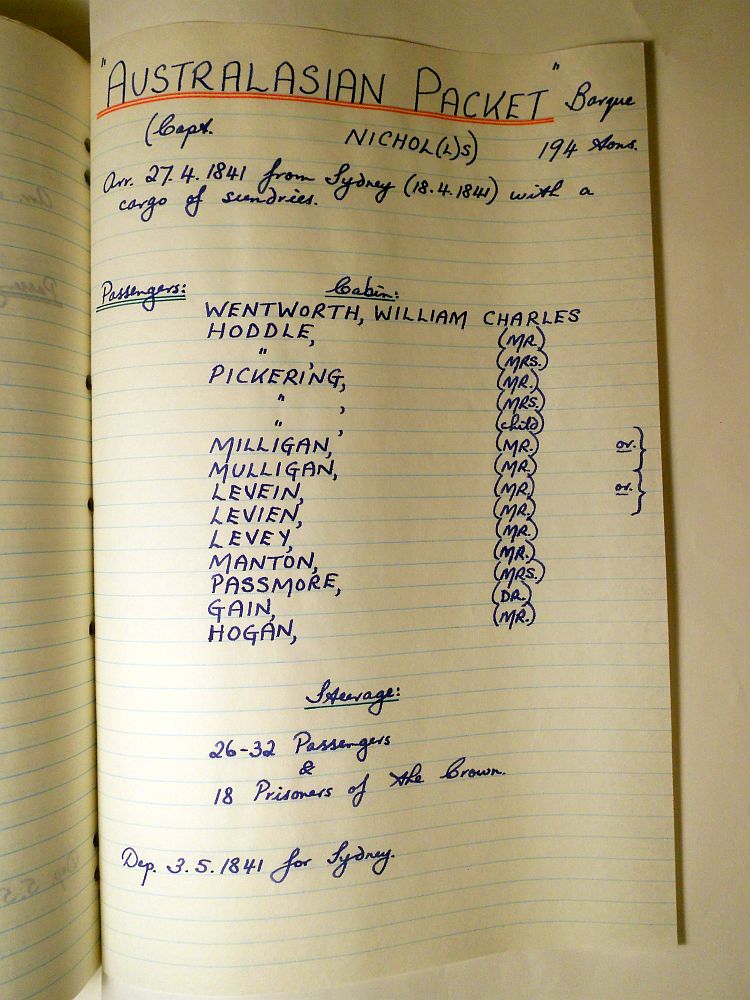 "AUSTRALASIAN PACKET" Barque
(Capt. NICHOL(L)S) 194 tons.
Arr. 27.4.1841 from Sydney (18.4.1841) with a
cargo of sundries.
Passengers: Cabin:
WENTWORTH, WILLIAM CHARLES
HODDLE, (MR.)
" , (MRS.)
PICKERING, (MR.)
" , (MRS.)
" , (child)
MILLIGAN, (MR.) or }
MULLIGAN, (MR.)
LEVEIN, (MR.) or. }
LEVIEN, (MR.)
LEVEY, (MR.)
MANTON, (MR.)
PASSMORE, (MRS.)
GAIN, (DR.)
HOGAN, (MR.)
Steerage:
26-32 Passengers
&
18 Prisoners of the Crown.
Dep. 3.5.1841 for Sydney.